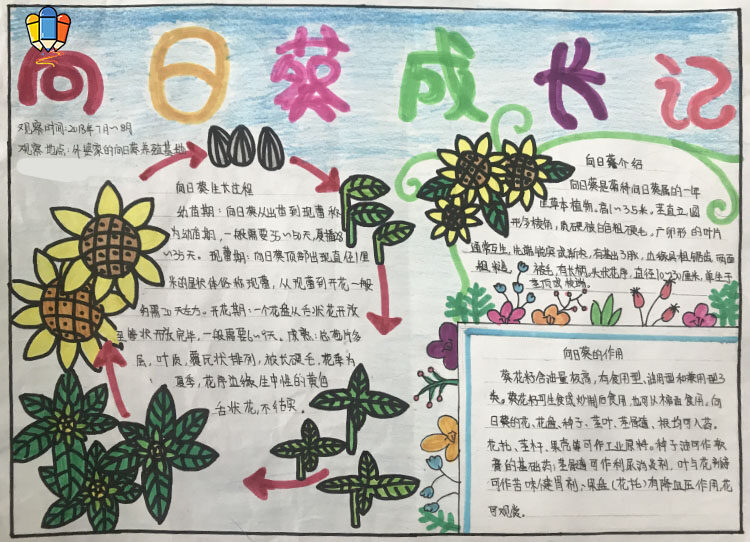 向日葵成长记
观察时间:2018年7月~8月
观察地点:外婆家的向日葵养殖基地
向日葵生长过程
幼苗期:向日葵从出苗到现蕾称
为幼苗期,一般需要35~50天,夏播28
~35天。现蕾期:向日葵顶部出现直径1厘
米的星状体俗称现蕾,从现蕾到开花一般
约需20天左右。开花期:一个花盘从舌状花开放
至管状开放完毕,一般需要6~9天。成熟:总苞片多
层,叶质,覆瓦状排列,被长硬毛,花季为
夏季,花序边缘生中性的黄色
舌状花,不结实。
向日葵介绍
向日葵是菊科向日葵属的一年
生草本植物。高1~3.5米。茎直立,圆
形多棱角,质硬被白色粗硬毛,广卵形的叶片
通常互生,先端锐突或渐尖,有基出3脉,边缘具粗锯齿,两面
粗糙,被毛,有长柄,头状花序,直径10~30厘米,单生于
茎顶或枝端。
向日葵的作用
葵花籽含油量极高,有食用型、油用型和兼用型3
类。葵花籽可生食或炒制后食用,也可以榨油食用。向
日葵的花、花盘、种子、茎叶、茎髓、根均可入药。
花托、茎秆、果壳等可作工业原料。种子油可作软
膏的基础药;茎髓可作利尿消炎剂,叶与花瓣
可作苦味健胃剂、果盘(花托)有降血压作用,花
可观赏。